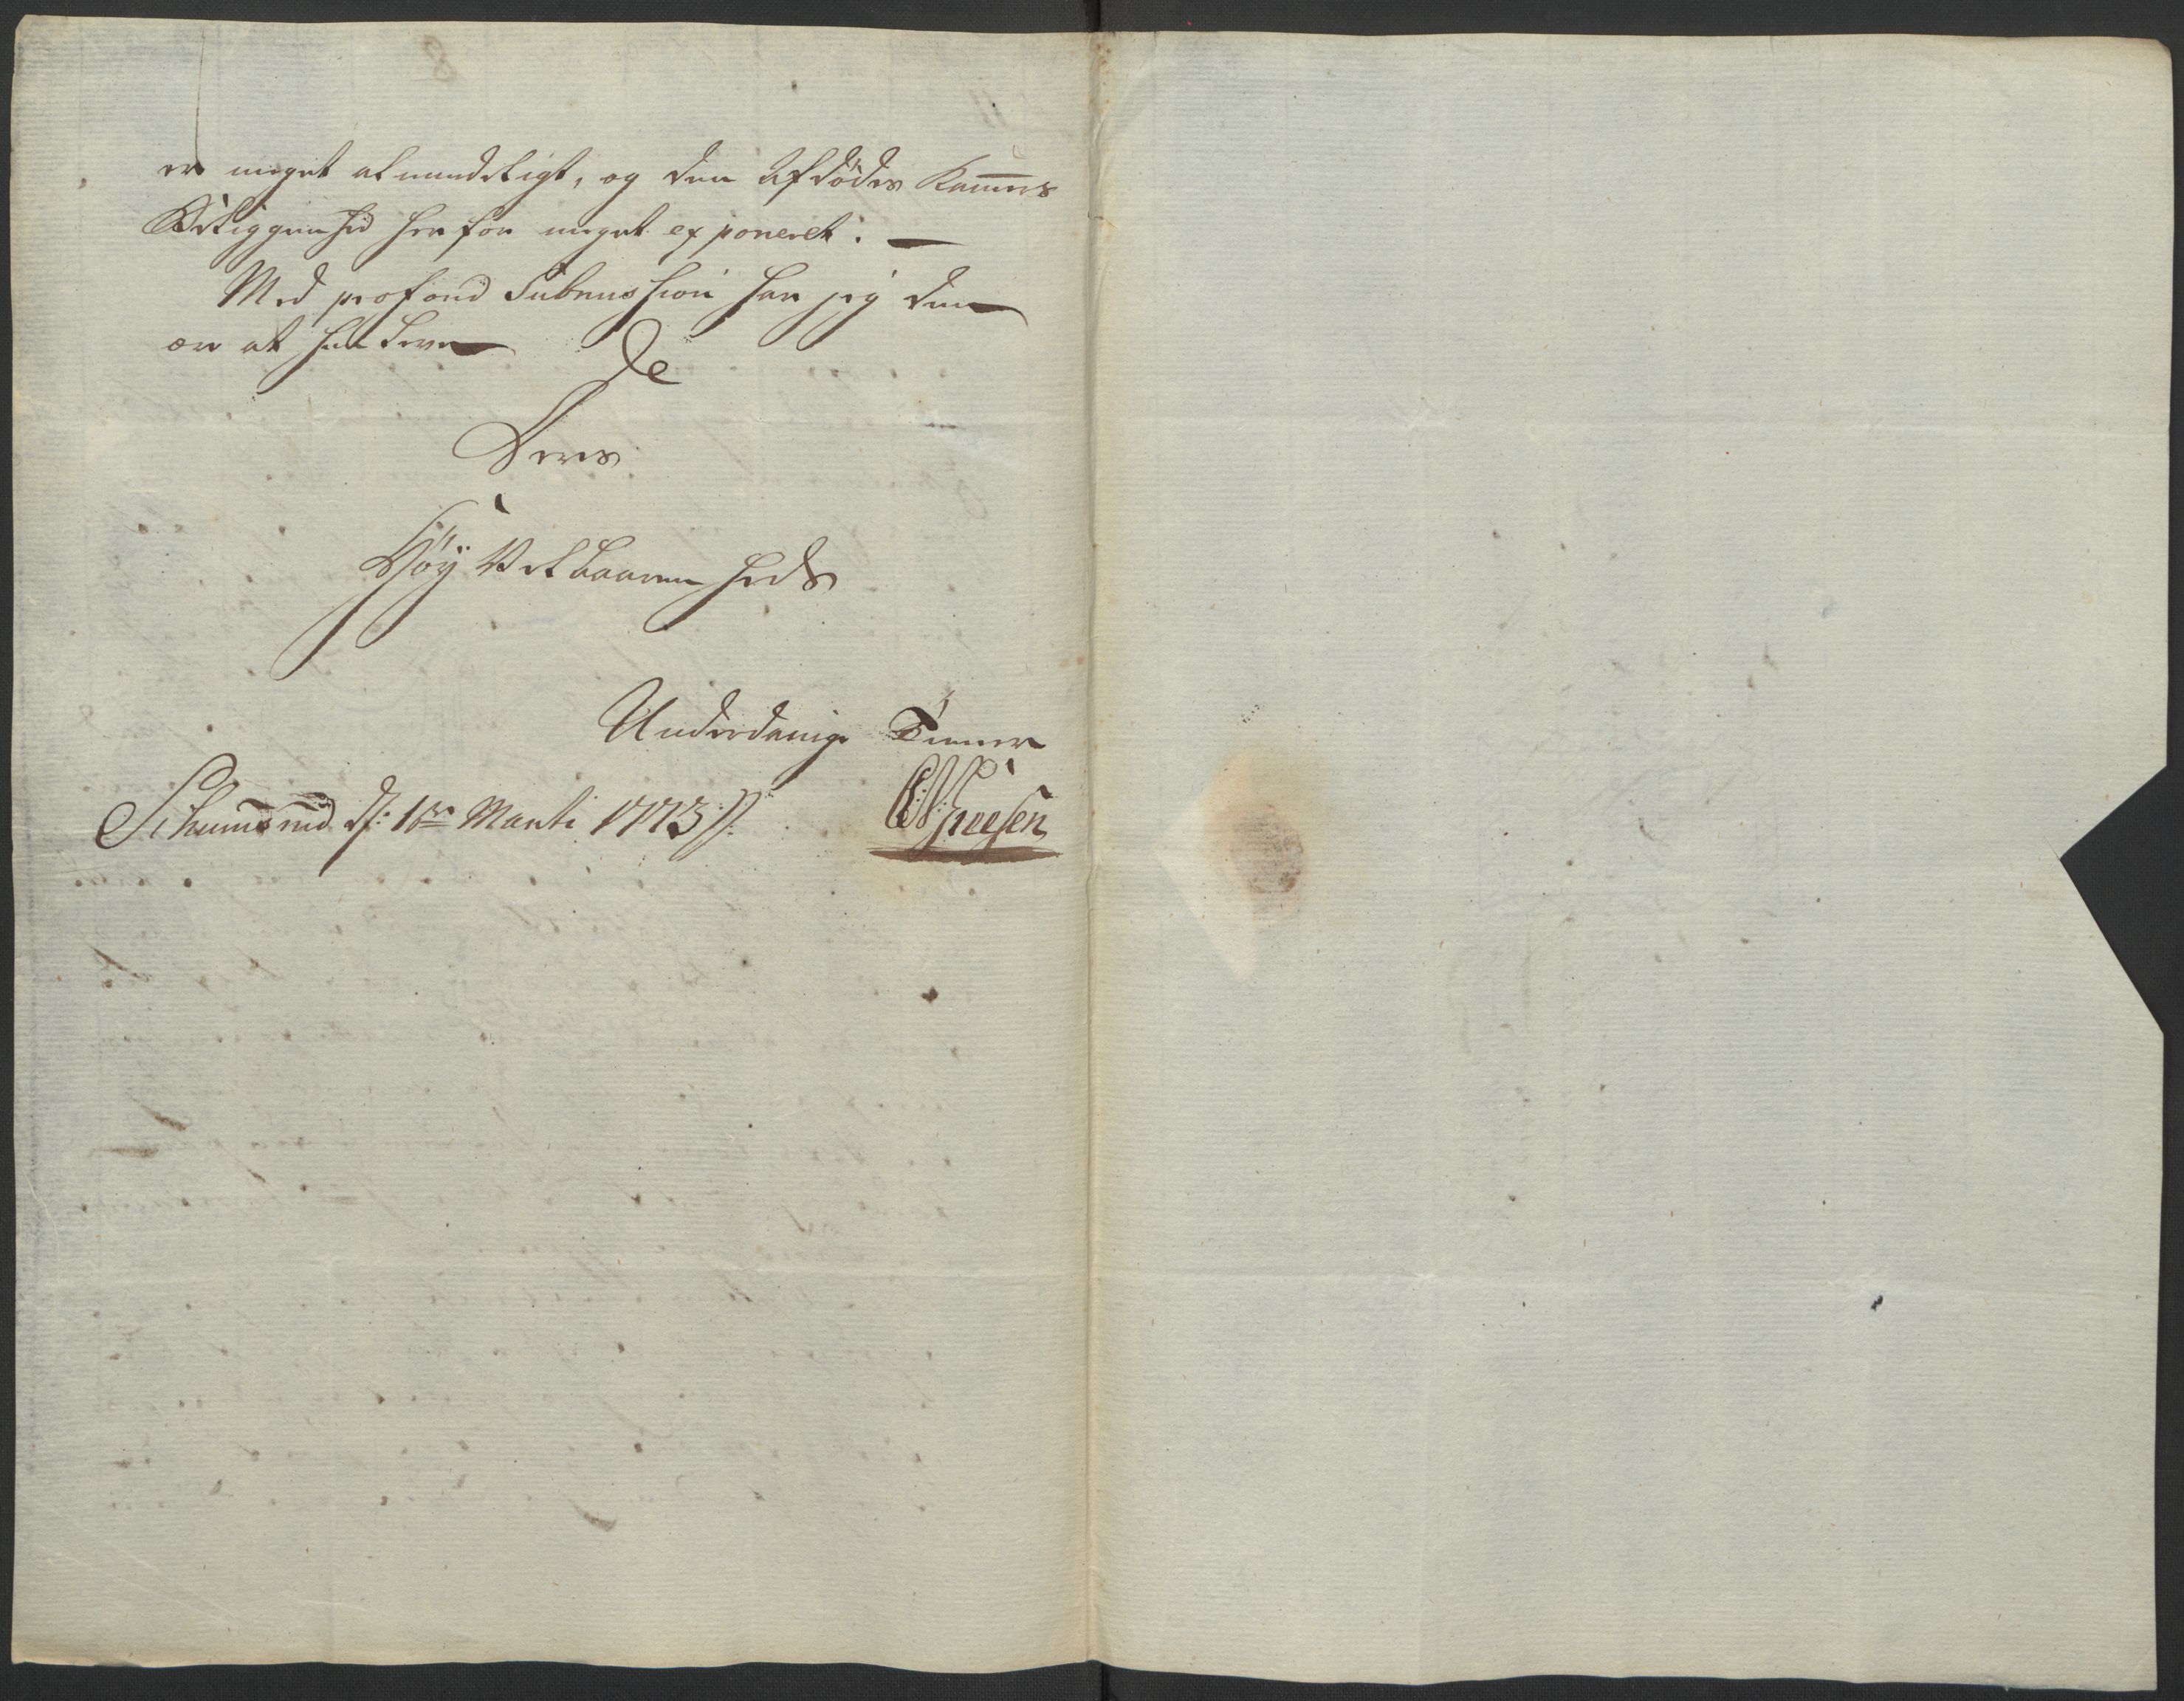 er meget almindeligt, og den Afdødes Kammers
Beliggenhed herfor meget exponeret: —
Med profond Submission har jeg den
ære at henleve
De
Deres
Høy Velbaarenheds
Underdanige Tienner
d: 16de Marti 1773